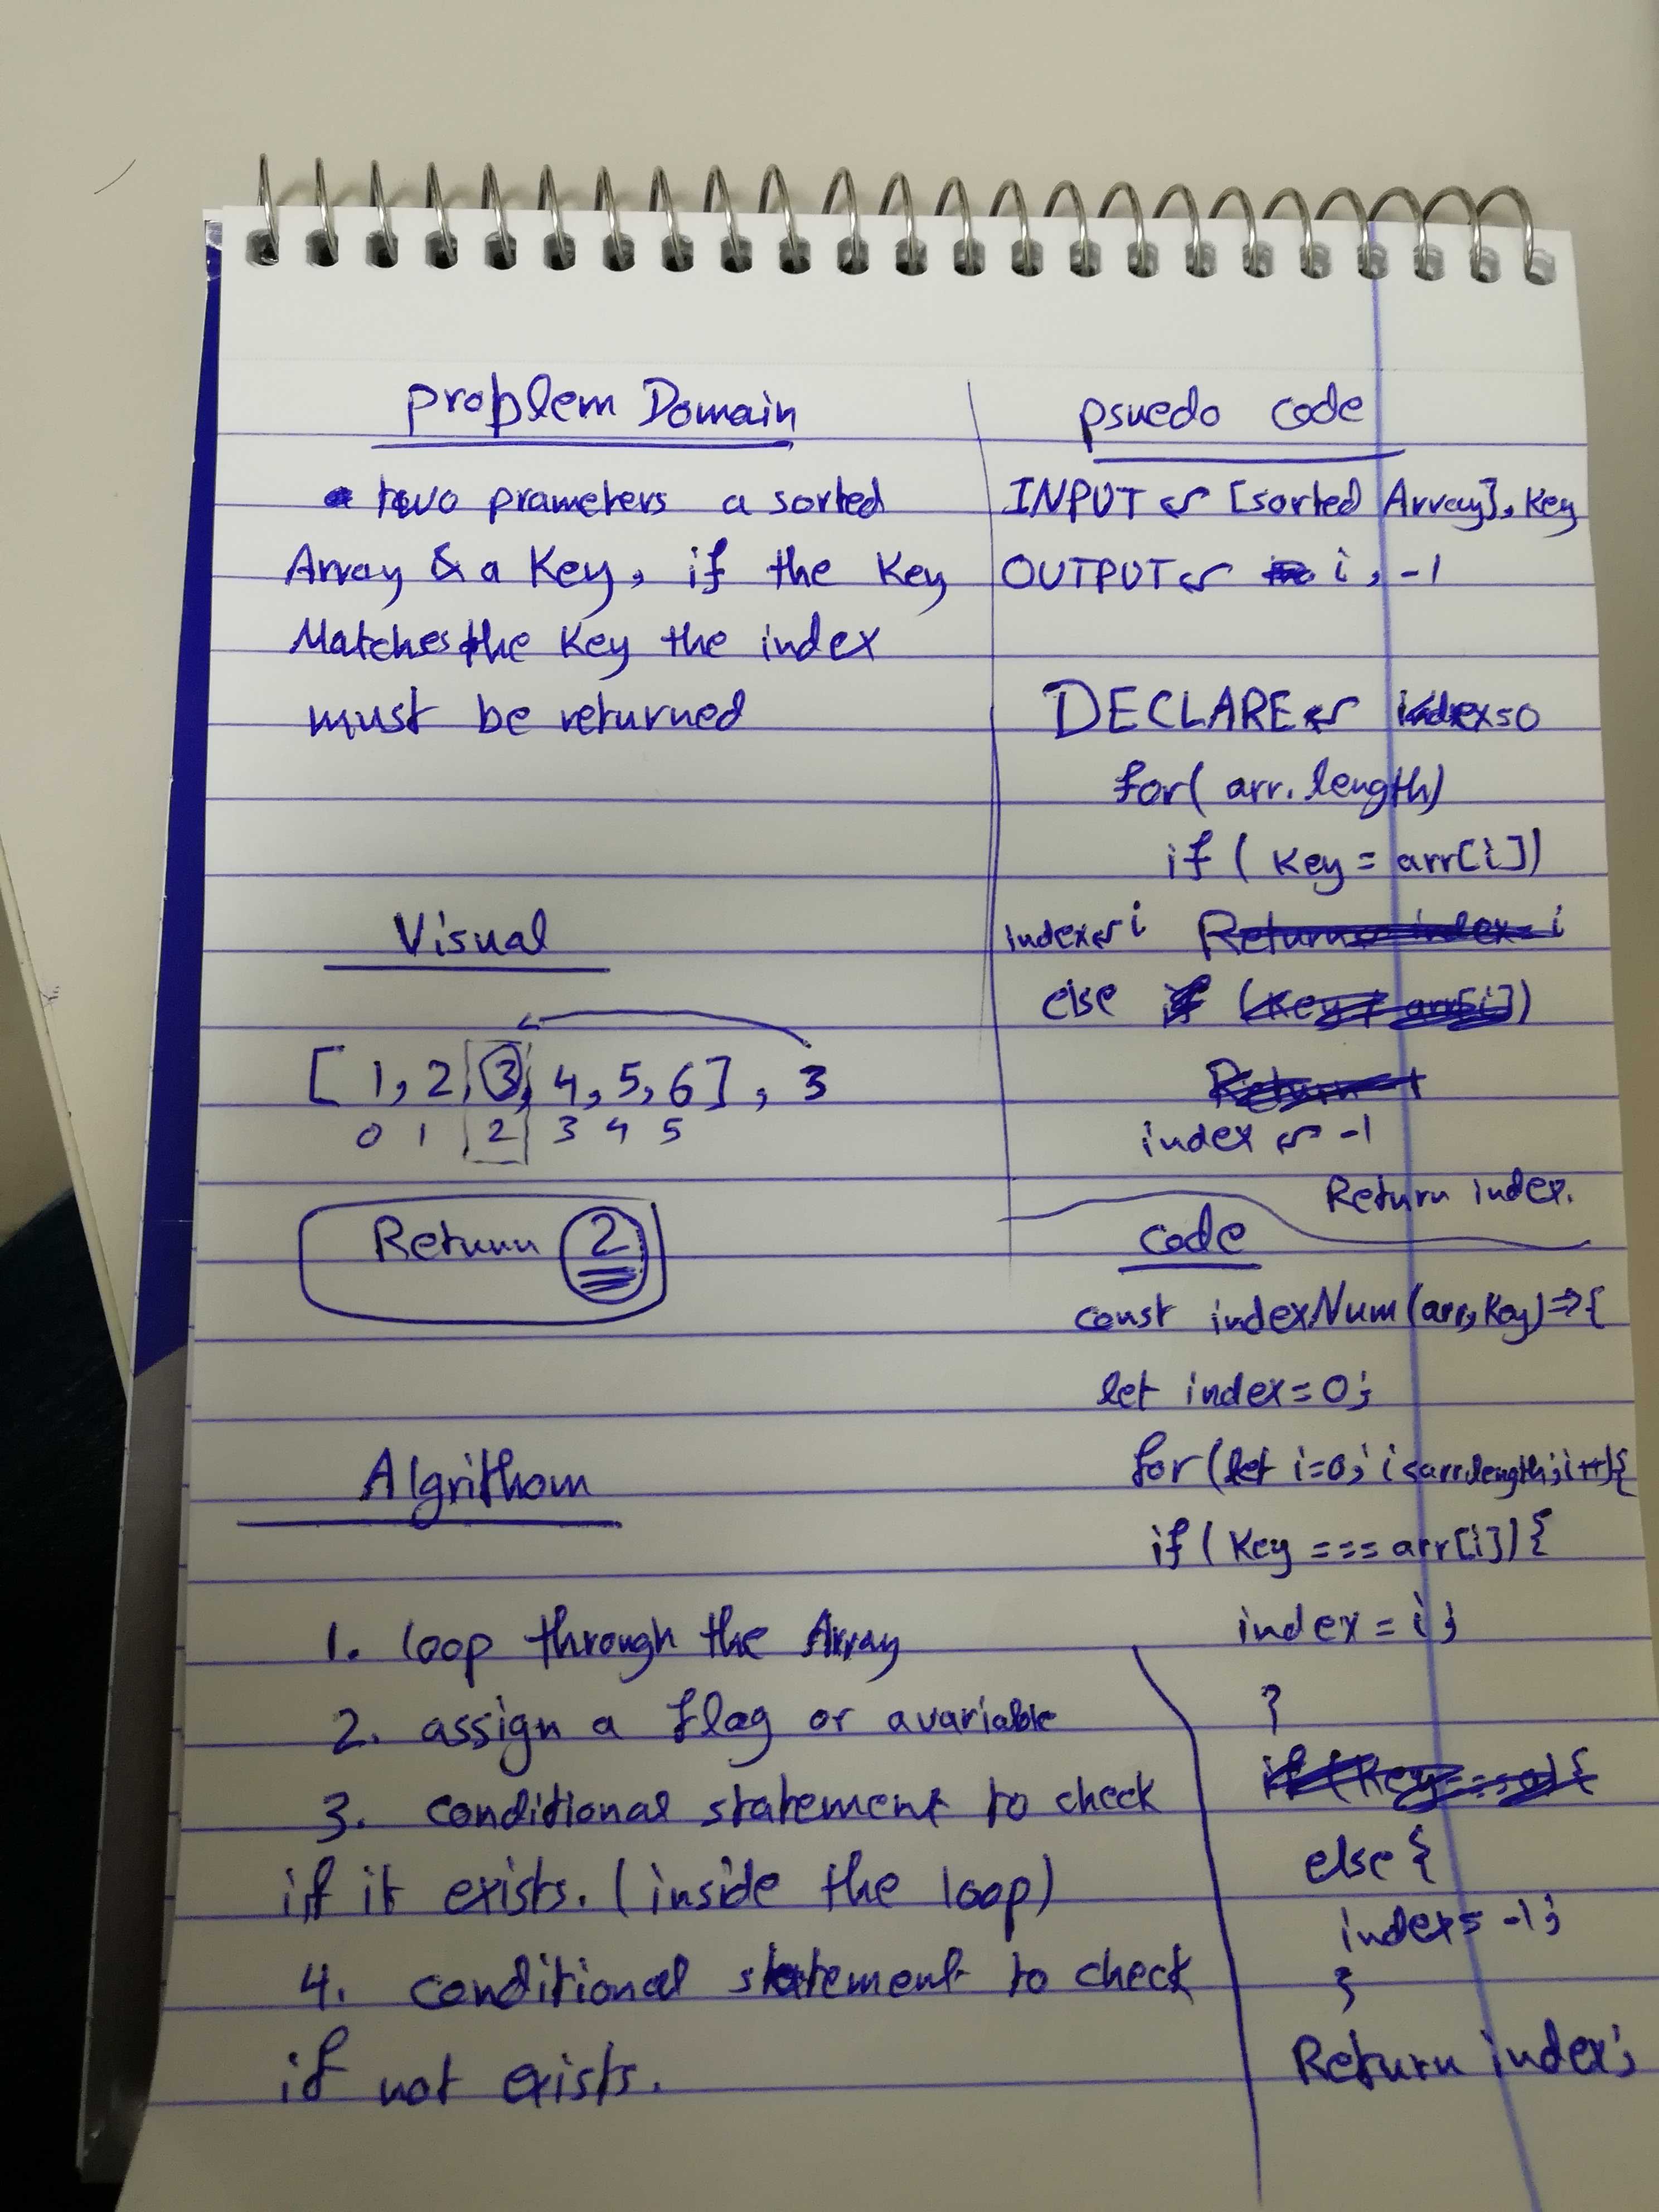 problem Domain
two prameters a sorted
Array & a Key, if the Key
Matches the Key the index
must be returned
Visual
[ 1, 2, 3, 4, 5, 6 ] , 3
0 1 2 3 4 5
Return 2
Algrithom
1. loop through the Array
2. assign a flag or avariable
3. conditional statement to check
if it exists. (inside the loop)
4. conditional statement to check
if not exists.
psuedo code
INPUT ← [sorted Array], Key
OUTPUT ← i, -1
DECLARE ← index=0
for( arr.length)
if ( Key = arr[i])
index ← i Return index = i
else if (Key arr[i])
Return
index ← -1
Return index.
code
const indexNum(arr,Key)=>{
let index=0;
for(let i=0; i<arr.length; i++){
if ( Key === arr[i]){
index = i;
}
if (Key
else {
index= -1;
}
Return index;